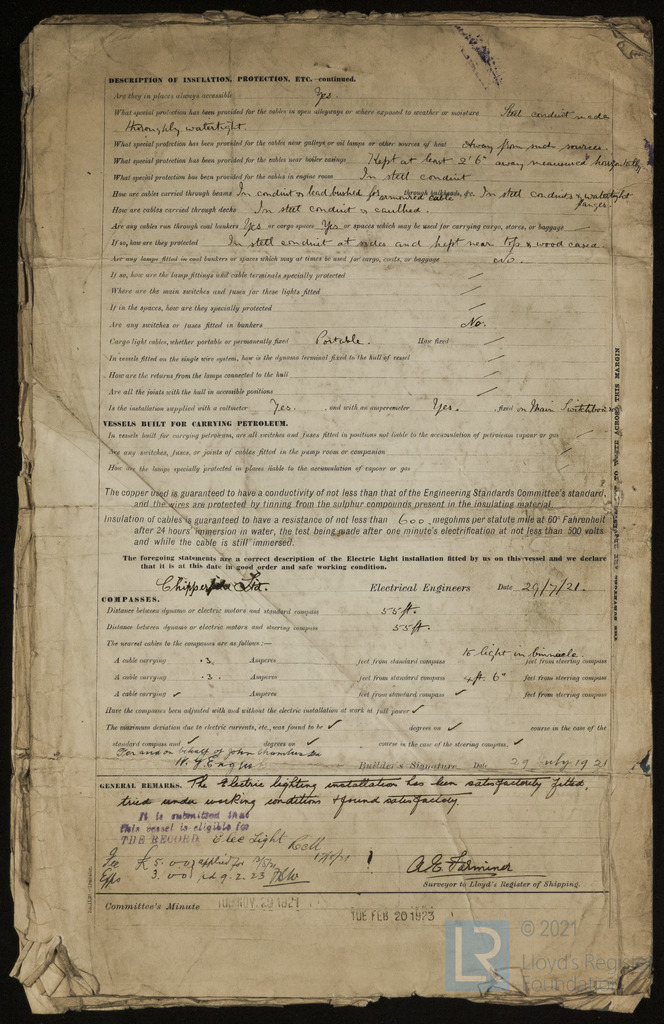 DESCRIPTION OF INSULATION, PROTECTION, ETC.—continued.
Are they in places always accessible Yes.
What special protection has been provided for the cables in open alleyways or where exposed to weather or moisture Steel conduit made
thoroughly watertight.
What special protection has been provided for the cables near galleys or oil lamps or other sources of heat Away from such sources.
What special protection has been provided for the cables near boiler casings Kept at least 2' 6" away measured horizontally.
What special protection has been provided for the cables in engine room In steel conduit
How are cables carried through beams In conduit & lead bushed for armoured cable through bulkheads, &c. In steel conduits & watertight
flanges.
How are cables carried through decks In steel conduit & caulked.
Are any cables run through coal bunkers Yes or cargo spaces Yes or spaces which may be used for carrying cargo, stores, or baggage
If so, how are they protected In steel conduit at sides and kept near top & wood cased.
Are any lamps fitted in coal bunkers or spaces which may at times be used for cargo, coals, or baggage No.
If so, how are the lamp fittings and cable terminals specially protected
Where are the main switches and fuses for these lights fitted
If in the spaces, how are they specially protected
Are any switches or fuses fitted in bunkers No.
Cargo light cables, whether portable or permanently fixed Portable. How fixed
In vessels fitted on the single wire system, how is the dynamo terminal fixed to the hull of vessel
How are the returns from the lamps connected to the hull
Are all the joints with the hull in accessible positions
Is the installation supplied with a voltmeter Yes. , and with an amperemeter Yes. , fixed on Main Switchboard
VESSELS BUILT FOR CARRYING PETROLEUM.
In vessels built for carrying petroleum, are all switches and fuses fitted in positions not liable to the accumulation of petroleum vapour or gas
Are any switches, fuses, or joints of cables fitted in the pump room or companion
How are the lamps specially protected in places liable to the accumulation of vapour or gas
The copper used is guaranteed to have a conductivity of not less than that of the Engineering Standards Committee's standard,
and the wires are protected by tinning from the sulphur compounds present in the insulating material.
Insulation of cables is guaranteed to have a resistance of not less than 600 megohms per statute mile at 60° Fahrenheit
after 24 hours' immersion in water, the test being made after one minute's electrification at not less than 500 volts
and while the cable is still immersed.
The foregoing statements are a correct description of the Electric Light installation fitted by us on this vessel and we declare
that it is at this date in good order and safe working condition.
Ltd. Electrical Engineers Date 29/7/21.
COMPASSES.
Distance between dynamo or electric motors and standard compass 55 ft.
Distance between dynamo or electric motors and steering compass 55 ft.
The nearest cables to the compasses are as follows:—
to light in binnacle.
A cable carrying .3 Amperes feet from standard compass feet from steering compass
A cable carrying .3. Amperes feet from standard compass 4 ft. 6" feet from steering compass
A cable carrying ✓ Amperes feet from standard compass ✓ feet from steering compass
Have the compasses been adjusted with and without the electric installation at work at full power ✓
The maximum deviation due to electric currents, etc., was found to be ✓ degrees on ✓ course in the case of the
standard compass and ✓ degrees on ✓ course in the case of the steering compass. ✓
For and on behalf of John Chambers Ld
Builder's Signature. Date 29 July 1921
GENERAL REMARKS. The Electric lighting installation has been satisfactorily fitted,
tried under working conditions & found satisfactory.
It is submitted that
this vessel is eligible for
THE RECORD. Elec Light
Fee £5.0.0 applied for
3.0.0 9.2.23
Surveyor to Lloyd's Register of Shipping.
Committee's Minute TUE. NOV. 29 1921
TUE FEB 20 1923
THIS MARGIN
LR
© 2021
Lloyd's Register
Foundation